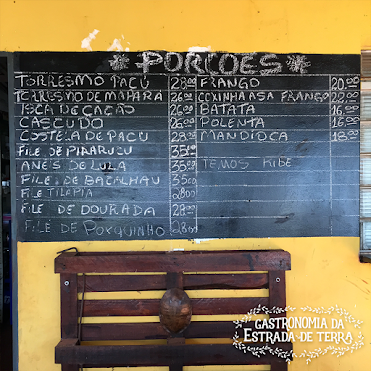 * PORCOES *
TORRESMO PACU 28,00
TORRESMO DE MAPARÁ 26,00
ISCA DE CAÇÃO 26,00
CASCUDO 26,00
COSTELA DE PACU 28,00
FILE DE PIRARUCU 35,00
ANEIS DE LULA 35,00
FILE DE BACALHAU 35,00
FILE TILAPIA 28,00
FILE DE DOURADA 28,00
FILE DE PORQUINHO 28,00
FRANGO 20,00
COXINHA ASA FRANGO 22,00
BATATA 16,00
POLENTA 16,00
MANDIOCA 18,00
TEMOS
GASTRONOMIA DA
ESTRADA DE TERRA